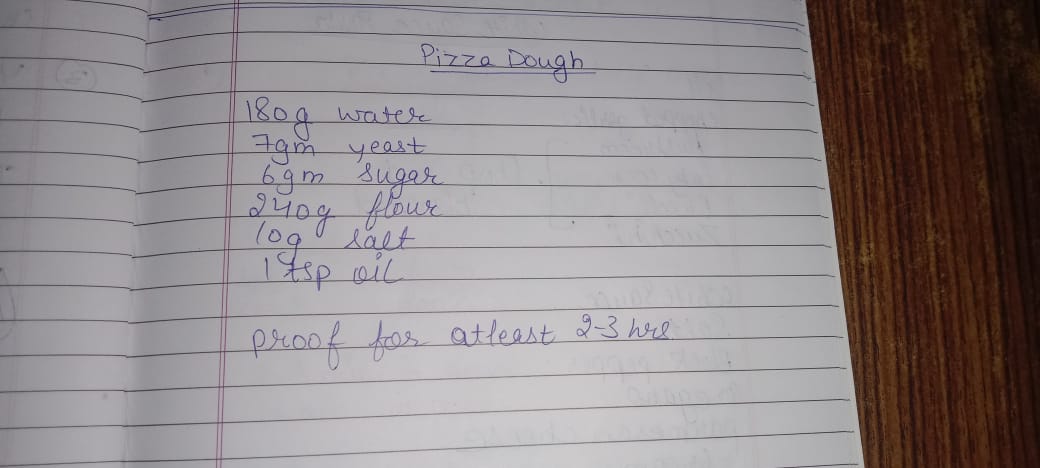 Pizza Dough
180g water
7gm yeast
6gm sugar
240g flour
10g salt
1 tsp oil
proof for atleast 2-3 hrs